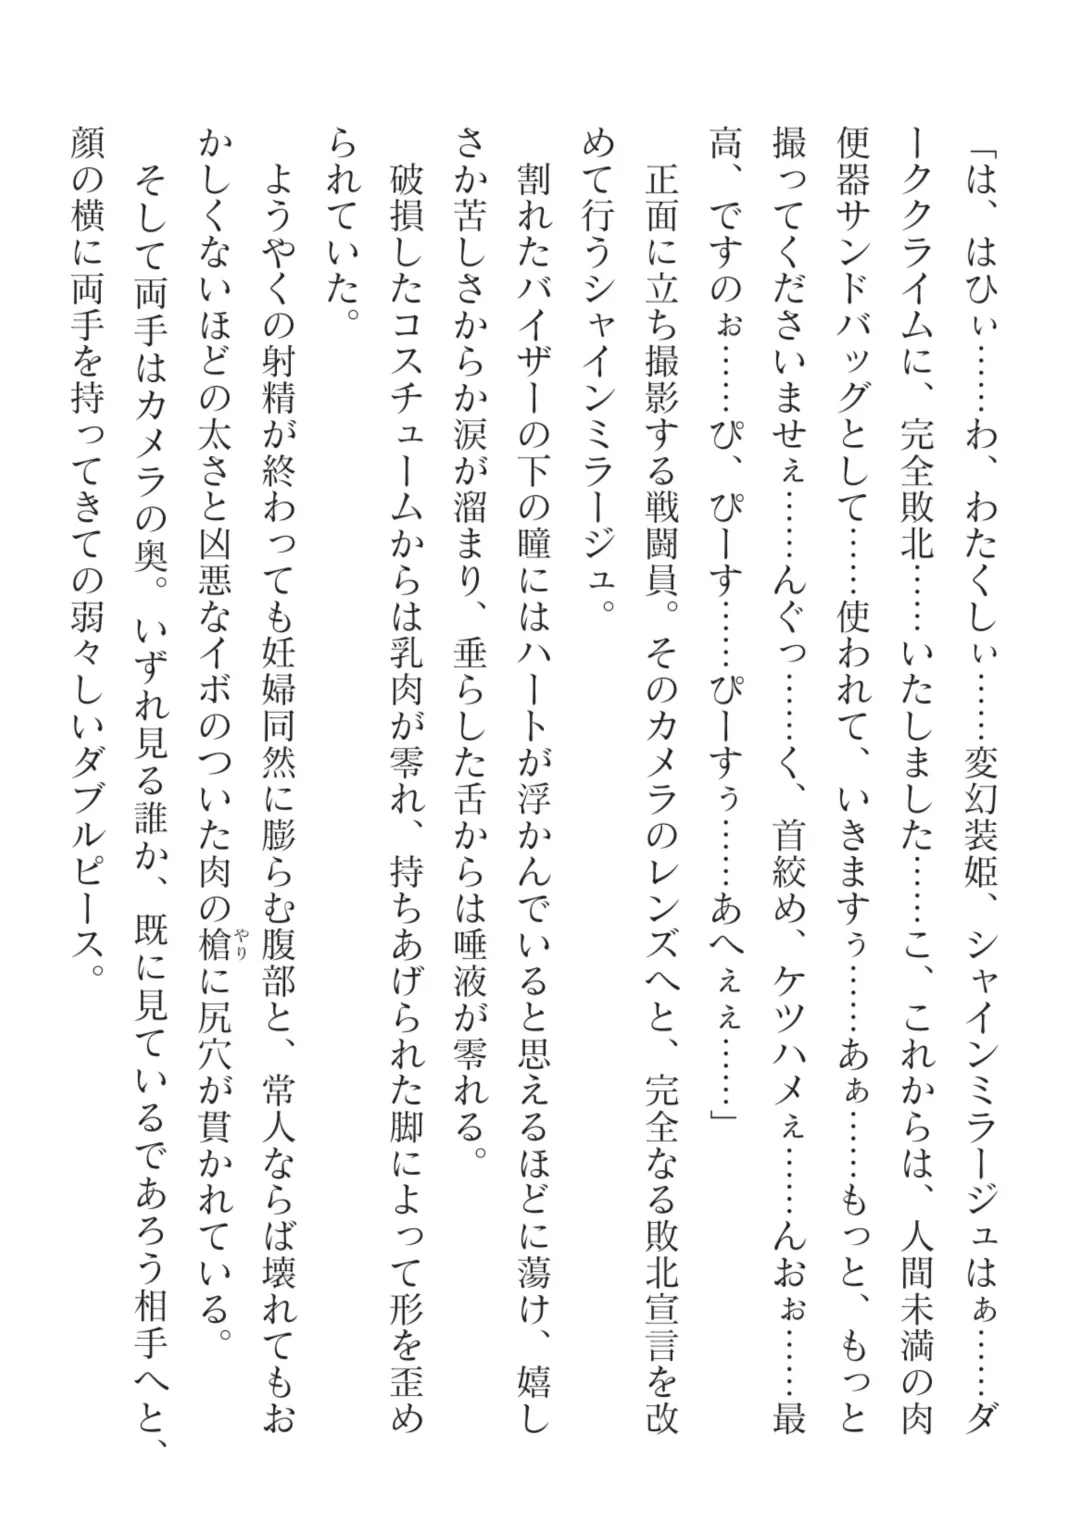 「は、はひぃ……わ、わたくしぃ……変幻装姫、シャインミラージュはぁ……ダ
ーククライムに、完全敗北……いたしました……こ、これからは、人間未満の肉
便器サンドバッグとして……使われて、いきますぅ……あぁ……もっと、もっと
撮ってくださいませぇ……んぐっ……く、首絞め、ケツハメぇ……んおぉ……最
高、ですのぉ……ぴ、ぴーす……ぴーすぅ……あへぇぇ……」
　正面に立ち撮影する戦闘員。そのカメラのレンズへと、完全なる敗北宣言を改
めて行うシャインミラージュ。
　割れたバイザーの下の瞳にはハートが浮かんでいると思えるほどに蕩け、嬉し
さか苦しさからか涙が溜まり、垂らした舌からは唾液が零れる。
　破損したコスチュームからは乳肉が零れ、持ちあげられた脚によって形を歪め
られていた。
　ようやくの射精が終わっても妊婦同然に膨らむ腹部と、常人ならば壊れてもお
かしくないほどの太さと凶悪なイボのついた肉の槍やりに尻穴が貫かれている。
　そして両手はカメラの奥。いずれ見る誰か、既に見ているであろう相手へと、
顔の横に両手を持ってきての弱々しいダブルピース。